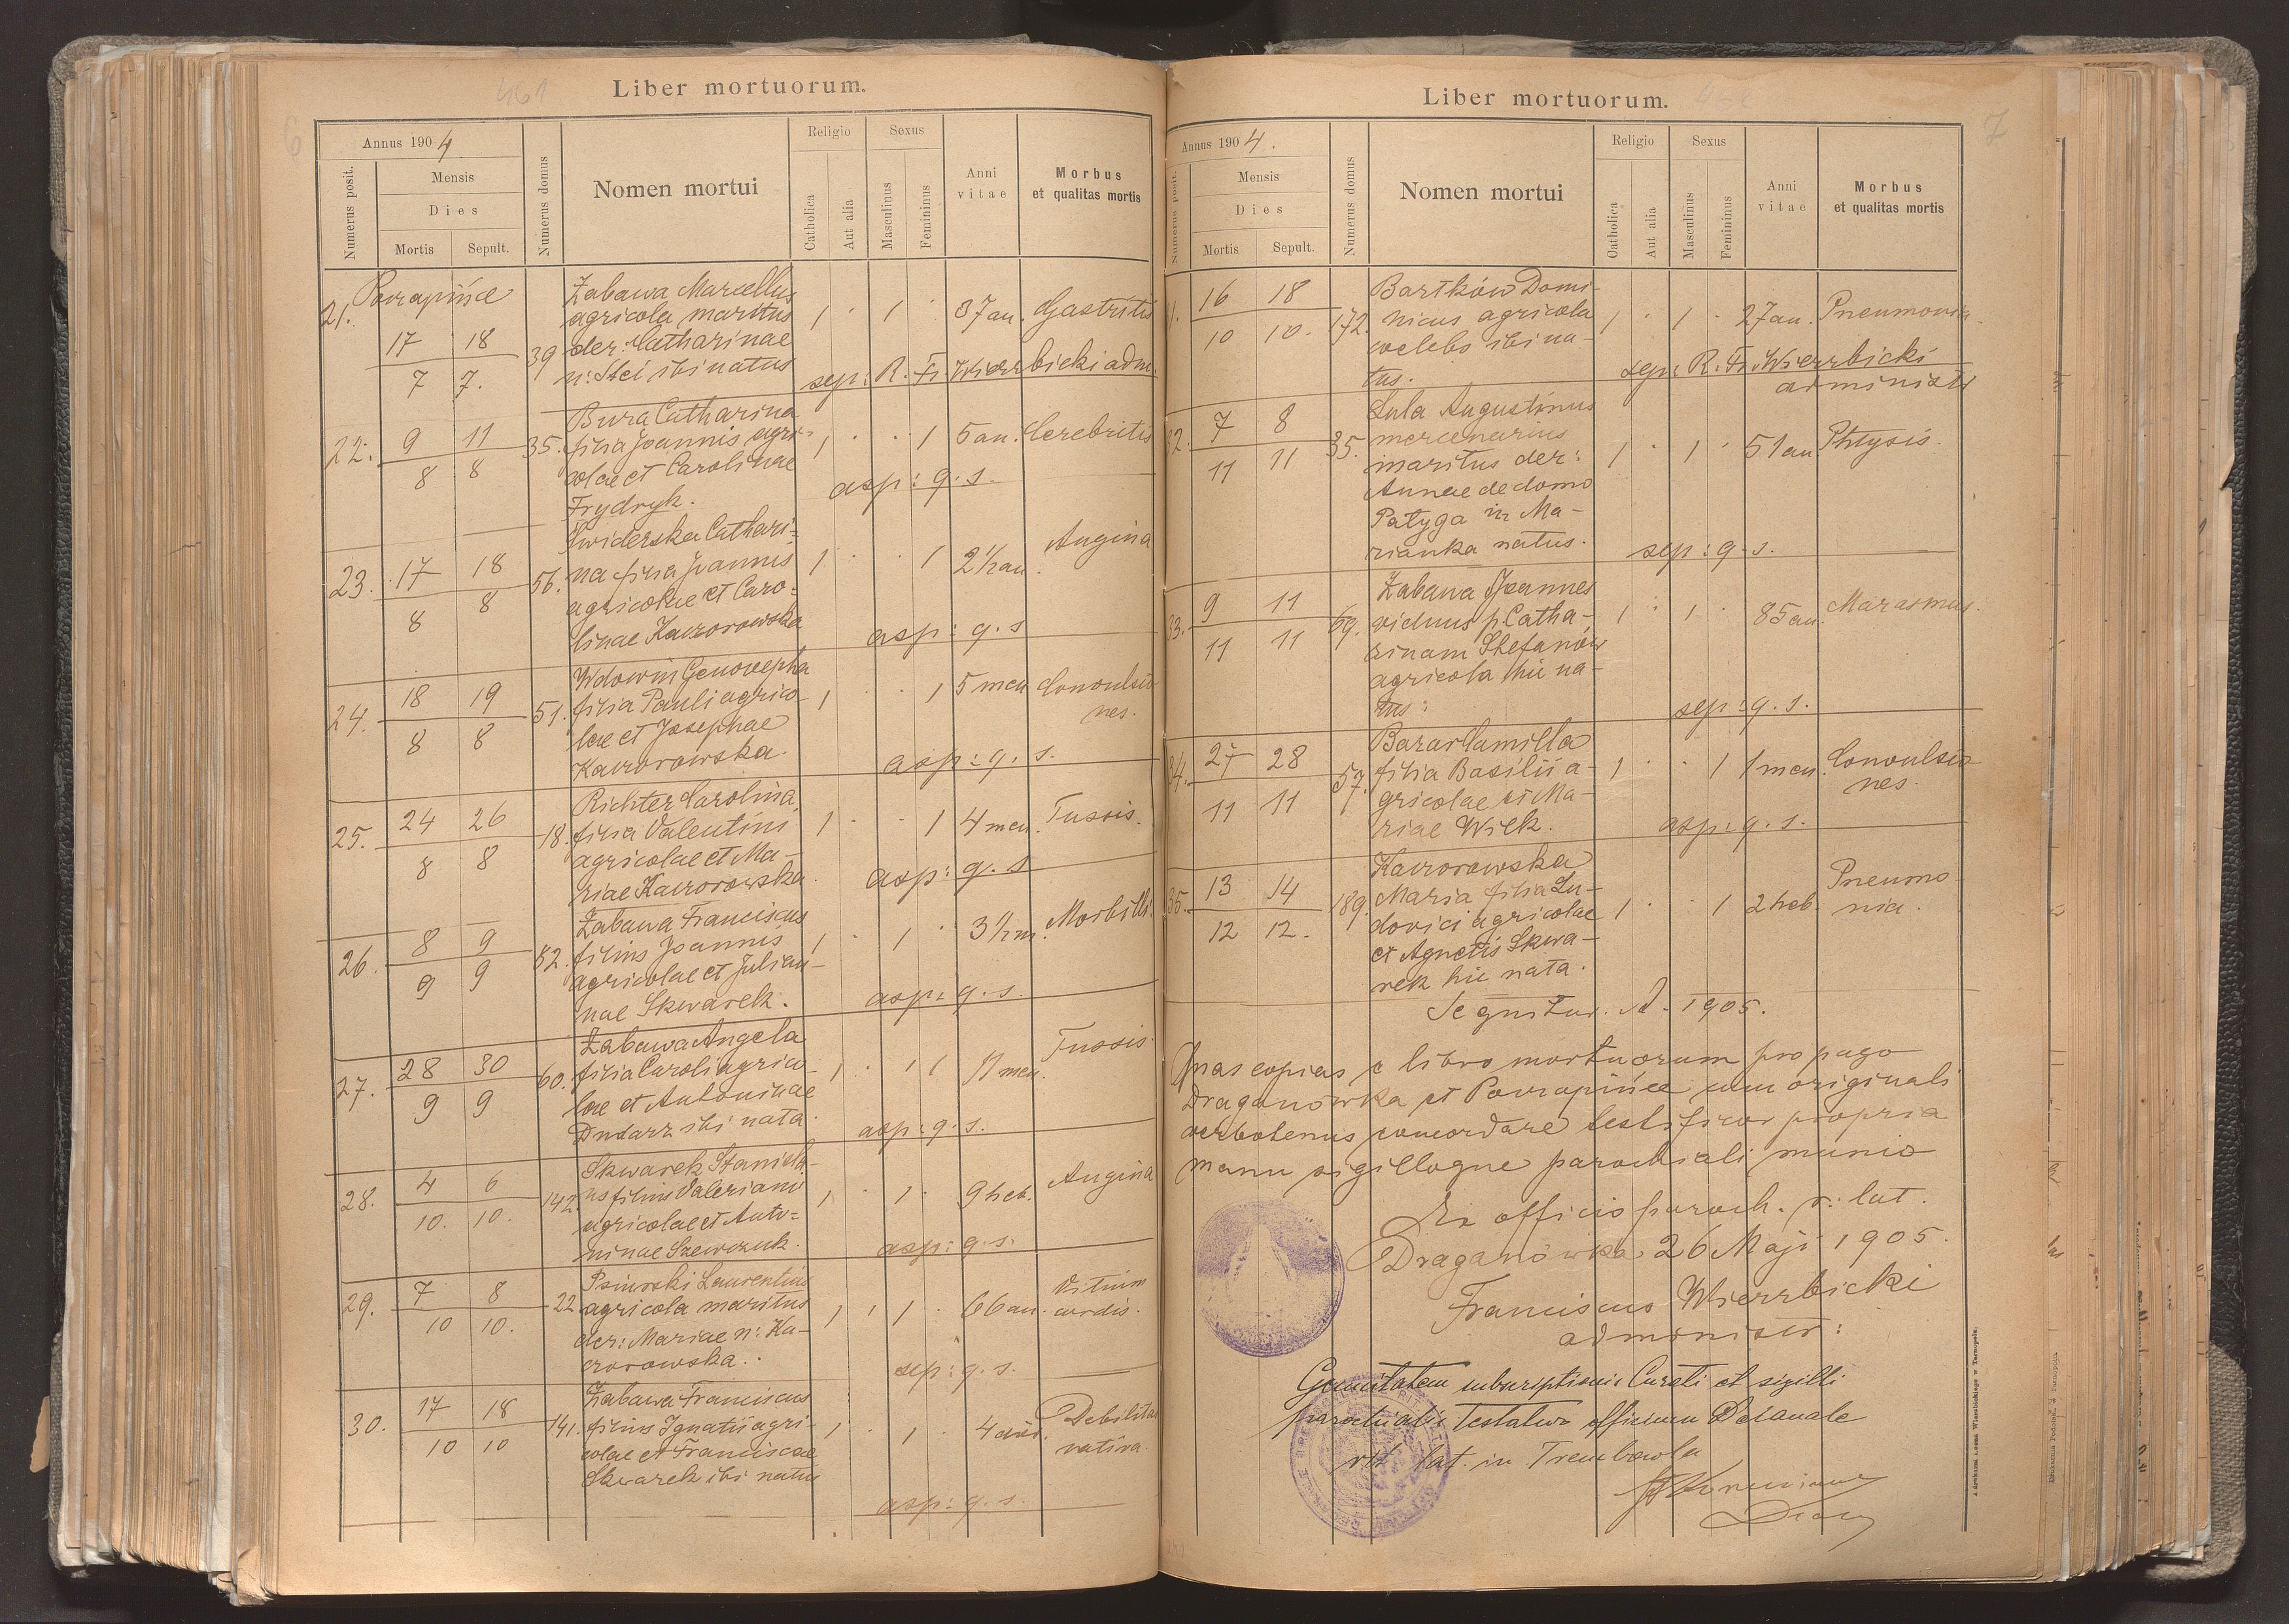 461
Liber mortuorum.
6
Annus 1904
Numerus posit.
Mensis
Dies
Mortis
Sepult.
Numerus domus
Nomen mortui
Religio
Catholica
Aut alia
Sexus
Masculinus
Femininus
Anni
vitae
Morbus
et qualitas mortis
21. 17 18
7 7.
39
Zabawa Marcellus
agricola maritus
der: Catharinae
ibi natus
1 1 37 an. Gastritis
sep: R. Fr. Wierzbicki adm.
22. 9 11
8 8
35.
Bura Catharina
filia Joannis agri-
colae et Carolinae
Frydryk.
1 1 5 an. Cerebritis
asp: q. s.
23. 17 18
8 8
56.
Swiderska Cathari-
na filia Joannis
agricolae et Caro-
linae Kaczorowska
1 1 2 1/2 an. Angina
asp: q. s
24. 18 19
8 8
51.
Wdowin Genovepha
filia Pauli agrico-
lae et Josephae
Kaczorowska.
1 1 5 men Convulsio-
nes.
asp: q. s.
25. 24 26
8 8
18.
Richter Carolina
filia Valentini
agricolae et Ma-
riae Kaczorowska.
1 1 4 men. Tussis.
asp: q. s
26. 8 9
9 9
82.
Zabawa Franciscus
filius Joannis
agricolae et Julian-
nae Skwarek.
1 1 3 1/2 m. Morbilli
asp: q. s.
27. 28 30
9 9
60.
Zabawa Angela
filia Caroli agrico-
lae et Antoninae
Dudarz ibi nata.
1 1 men. Tussis.
asp: q. s.
28. 4 6
10. 10.
142.
Skwarek Stanisla-
us filius Valeriani
agricolae et Anto-
ninae Szewczuk.
1 1 9 heb. Angina
asp: q. s.
29. 7 8
10 10.
22
Laurentius
agricola maritus
der: Mariae n: Ka-
czorowska.
1 1 66 an. Vitium
cordis.
sep: q. s.
30. 17 18
10 10
141.
Zabawa Franciscus
filius Ignatii agri-
colae et Franciscae
Skwarek ibi natus
1 1 4 Debilitas
nativa.
asp: q. s.
Liber mortuorum.
7
Annus 1904.
Numerus posit.
Mensis
Dies
Mortis
Sepult.
Numerus domus
Nomen mortui
Religio
Catholica
Aut alia
Sexus
Masculinus
Femininus
Anni
vitae
Morbus
et qualitas mortis
16 18
10 10.
172.
Bartków Domi-
nicus agricola
coelebs ibi na-
tus.
1 1 27 an. Pneumonia.
sep: R. Fr. Wierzbicki
administr
32. 7 8
11 11
35.
Lula Augustinus
mercenarius
maritus der:
Annae de domo
Patyga in Ma-
rianka natus.
1 1 51 an Phtysis.
sep: q. s.
33. 9 11
11 11
69.
Zabawa Joannes
viduus p. Catha-
rinam Stefanów
agricola hic na-
tus:
1 1 85 an. Marasmus.
sep: q. s.
34. 27 28
11 11
57.
Bazar Camilla
filia Basilii a-
gricolae et Ma-
riae Wilk.
1 1 1 men. Convulsio
nes.
asp: q. s.
35. 13 14
12 12.
189.
Kaczorowska
Maria filia Lu-
dovici agricolae
et Agnetis Skwa-
rek hic nata.
1 1 2 heb. Pneumo-
nia.
Sequitur. A. 1905.
Has copias e libro mortuorum pro pago
Draganówka et Poczapińce cum originali
verbotenus concordare testificor propria
manu sigilloque parochiali munio
Ex officio paroch. r: lat.
Draganówka 26 Maji 1905.
Franciscus Wierzbicki
administr:
Genuitatem subscriptionis Curati et sigilli
parochialis testatur officium Decanale
rit. lat. in Trembowla